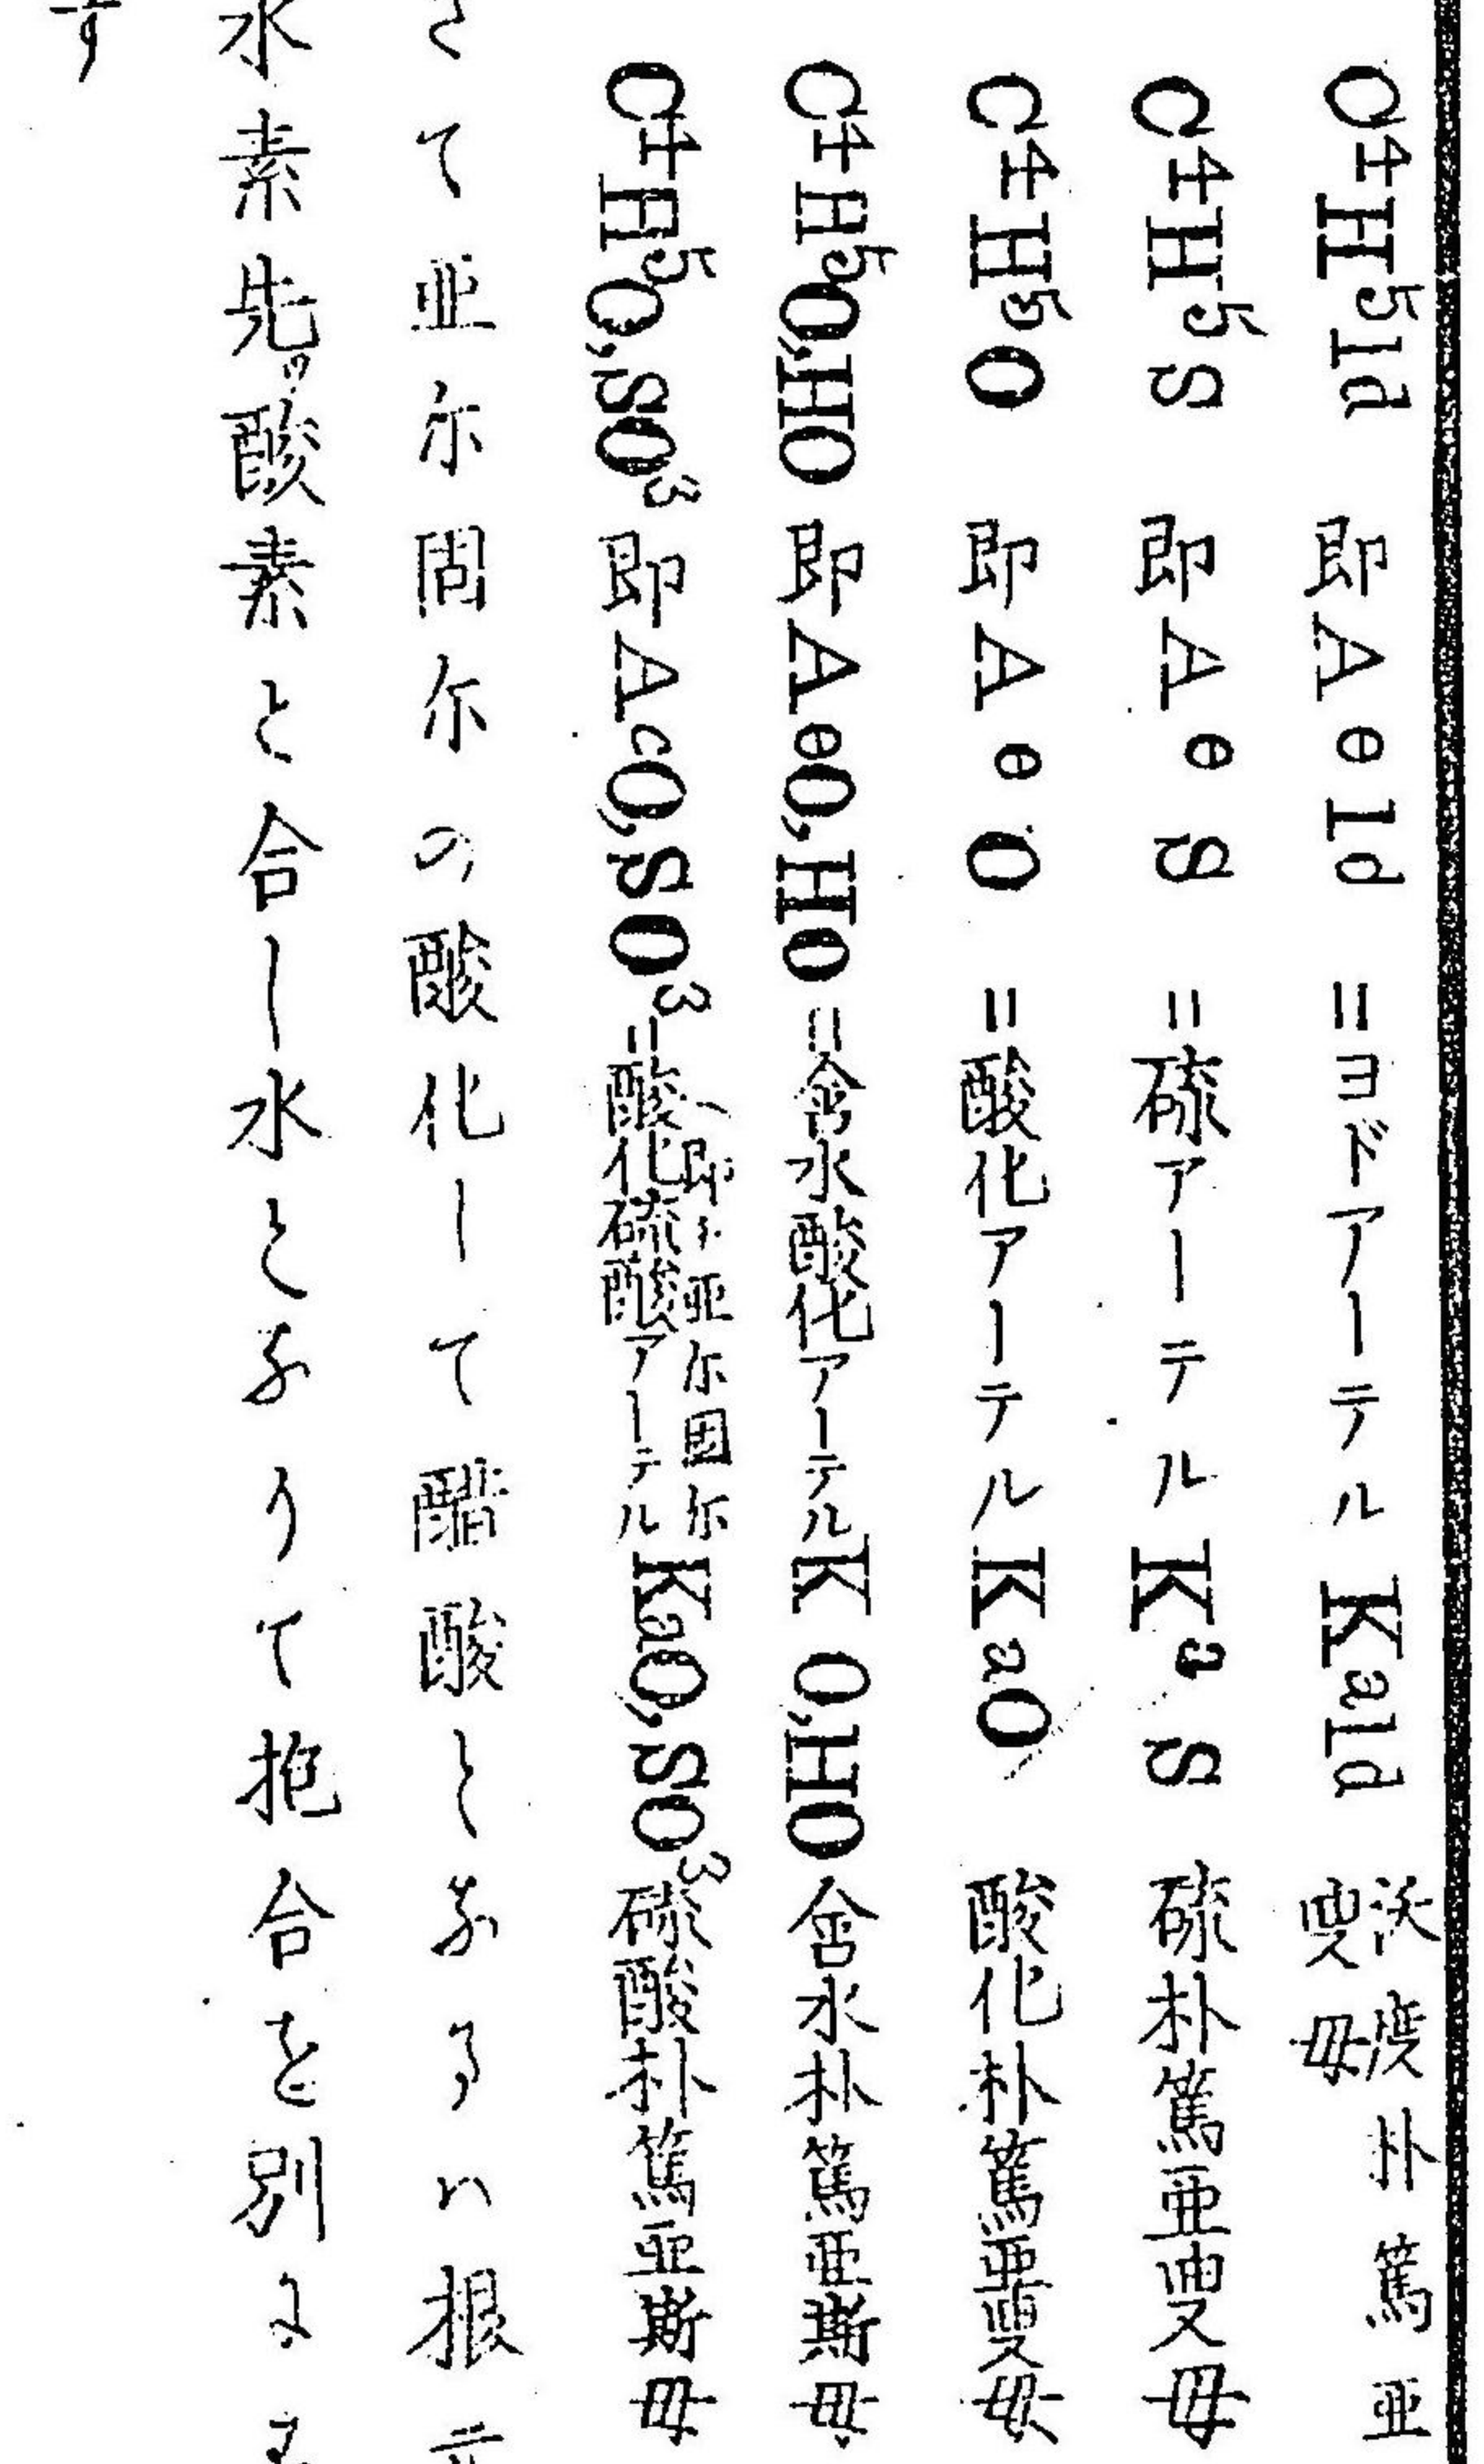 C⁴H⁵Id 即AeId =ヨドアーテル KaId 沃度朴篤亜叟母
C⁴H⁵S 即AeS =硫アーテル KaS 硫朴篤亜叟母
C⁴H⁵O 即AeO =酸化アーテル KaO 酸化朴篤亜叟母
C⁴H⁵O,HO 即AeO,HO =含水酸化アーテル K O,HO 含水朴篤亜斯母
C⁴H⁵O,SO³ 即AcO,SO³ =酸化硫酸アーテル KaO,SO³ 硫酸朴篤亜斯母
さて亜尓箇尓の酸化して醋酸となるハ根元
水素先ツ酸素と合し水となりて抱合を別に
す